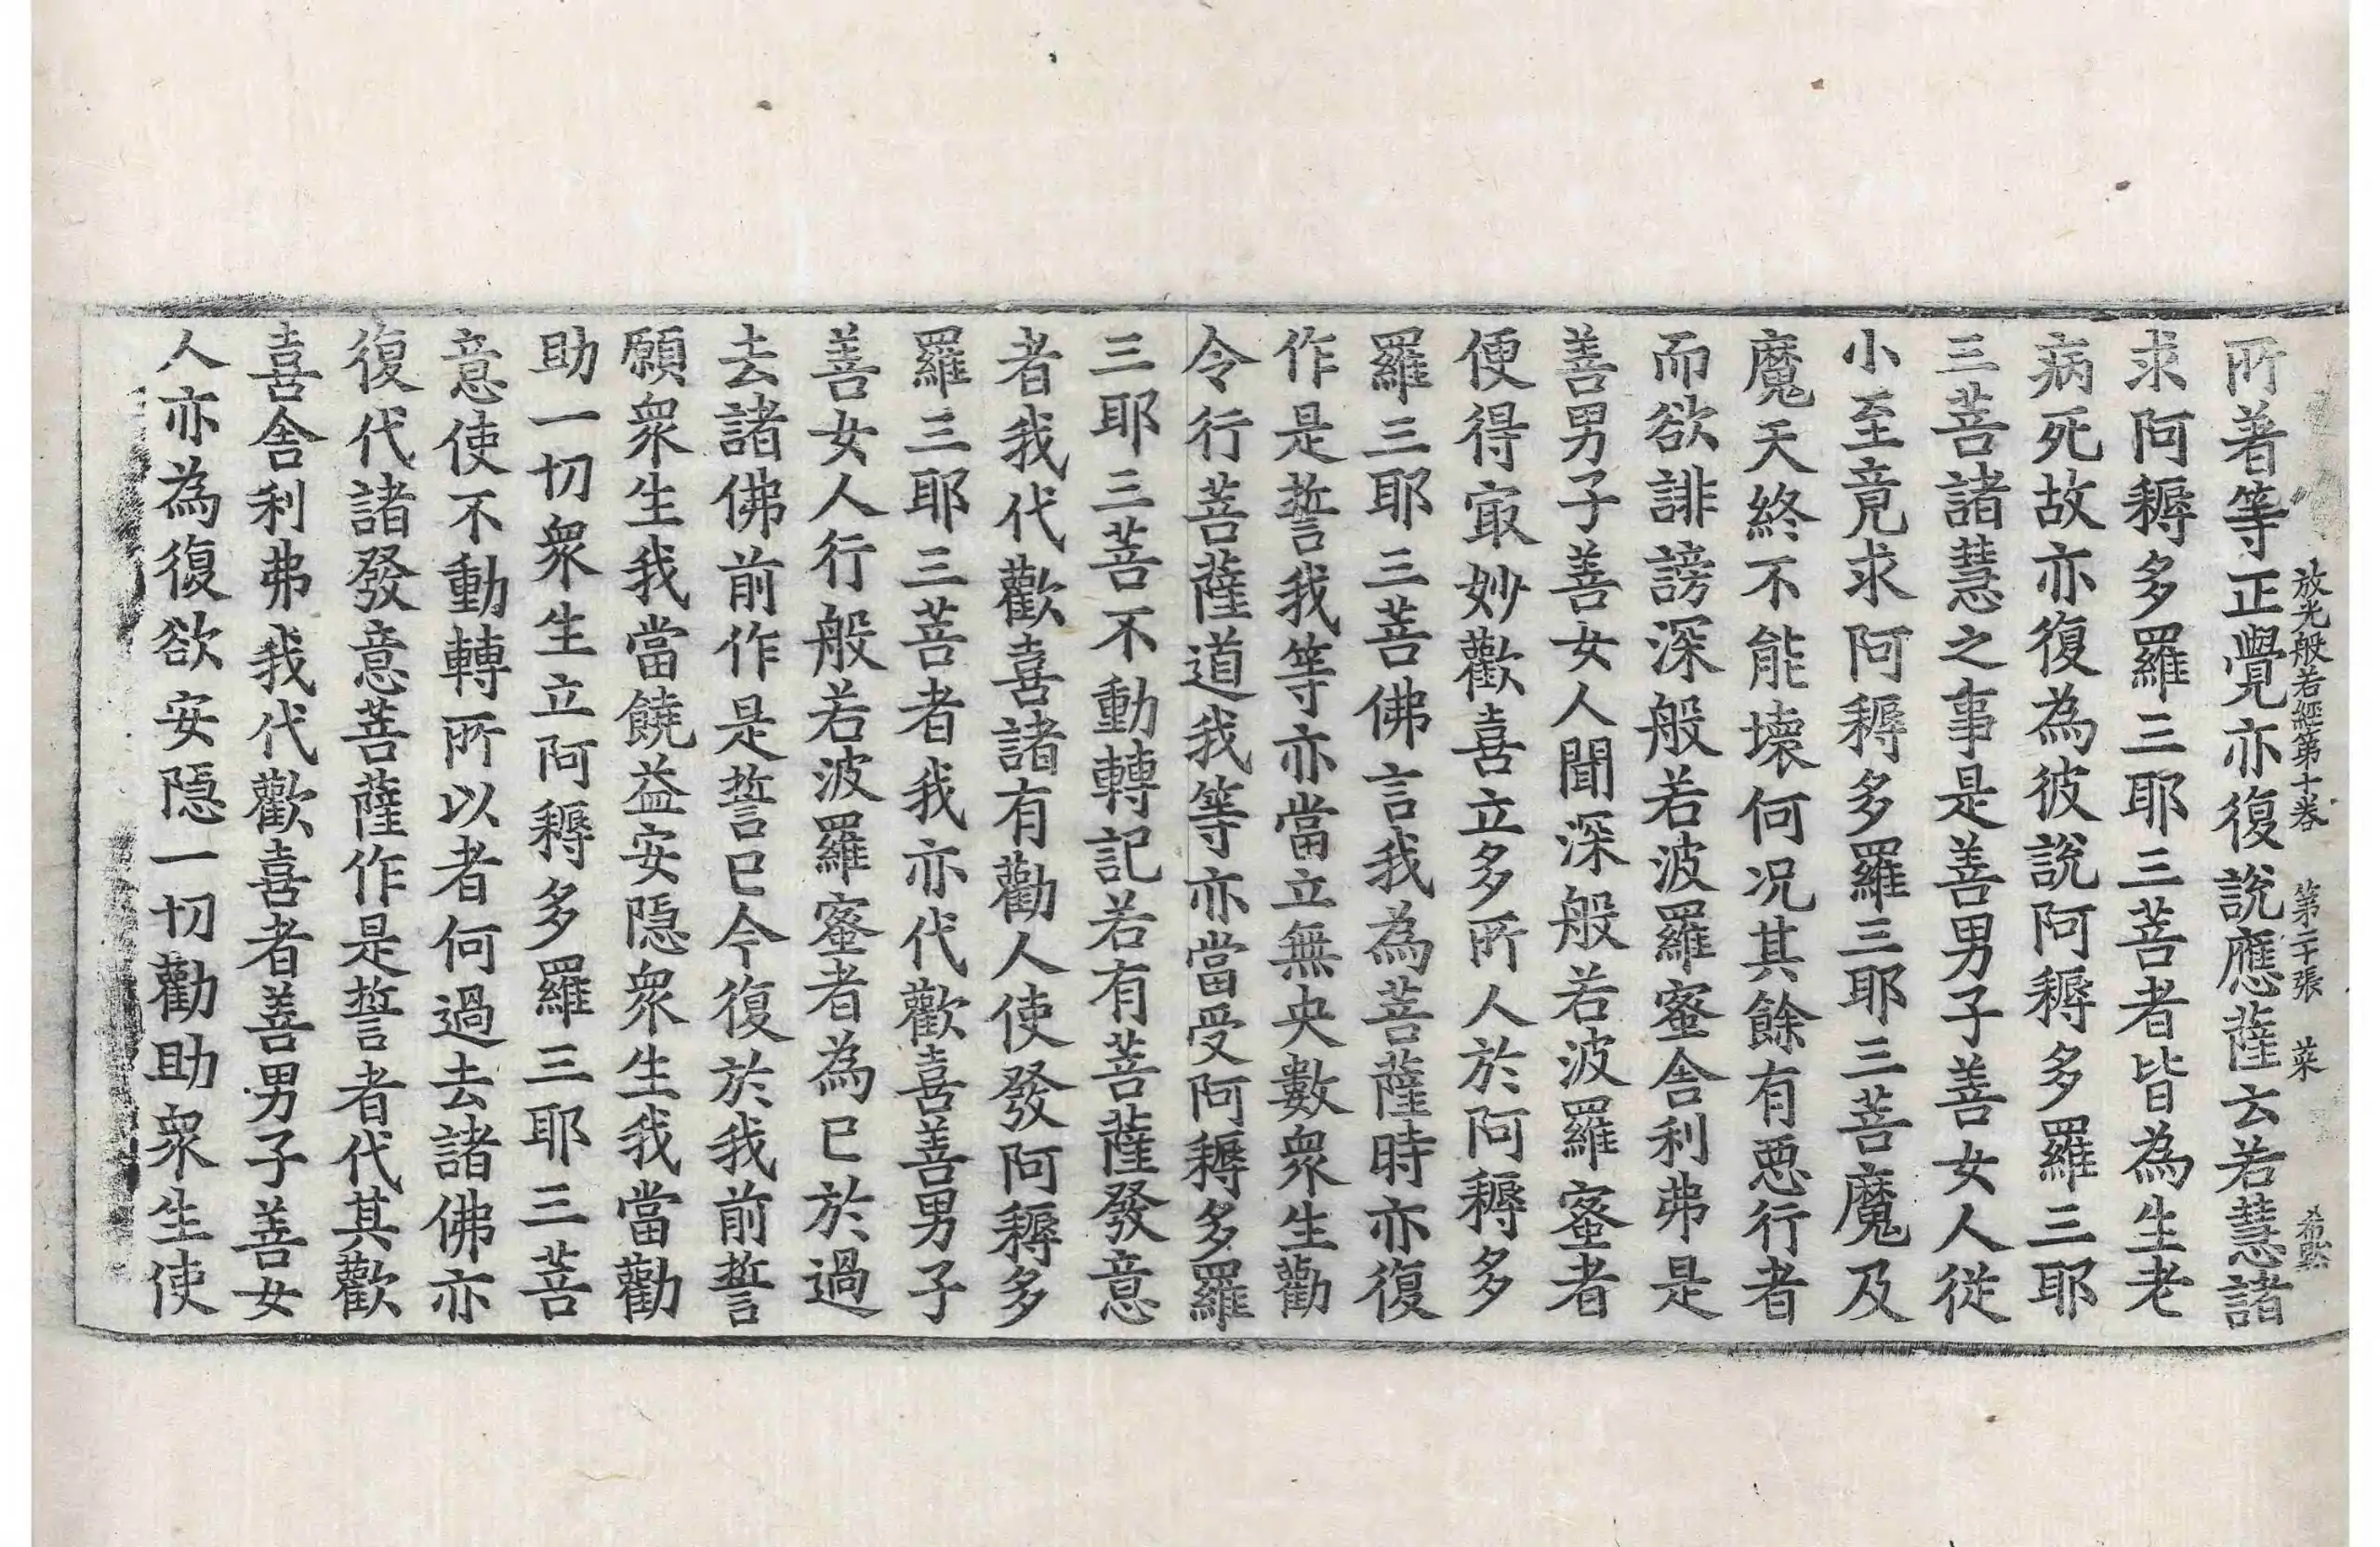 放光般若經第十卷　第二十張　菜　希點
所著等正覺亦復說應薩云若慧諸
求阿耨多羅三耶三菩者皆為生老
病死故亦復為彼說阿耨多羅三耶
三菩諸慧之事是善男子善女人從
小至竟求阿耨多羅三耶三菩魔及
魔天終不能壞何况其餘有惡行者
而欲誹謗深般若波羅蜜舍利弗是
善男子善女人聞深般若波羅蜜者
便得㝡妙歡喜立多所人於阿耨多
羅三耶三菩佛言我為菩薩時亦復
作是誓我等亦當立無央數衆生勸
令行菩薩道我等亦當受阿耨多羅
三耶三菩不動轉記若有菩薩發意
者我代歡喜諸有勸人使發阿耨多
羅三耶三菩者我亦代歡喜善男子
善女人行般若波羅蜜者為已於過
去諸佛前作是誓已今復於我前誓
願衆生我當饒益安隱衆生我當勸
助一切衆生立阿耨多羅三耶三菩
意使不動轉所以者何過去諸佛亦
復代諸發意菩薩作是誓者代其歡
喜舍利弗我代歡喜者善男子善女
人亦為復欲安隱一切勸助衆生使